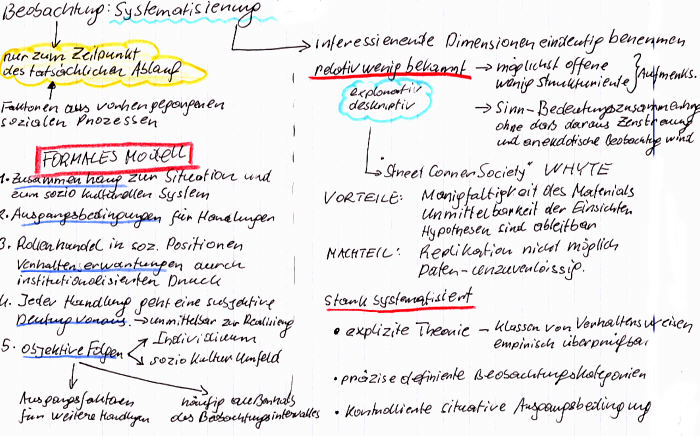 Beobachtung: Systematisierung
nur zum Zeitpunkt
des tatsächlichen Ablauf
Faktoren aus vorhergegangenen
sozialen Prozessen
FORMALES Modell
1. Zusammenhang zur Situation und
zum sozio kulturellen System
2. Ausgangsbedingungen für Handlungen
3. Rollenhandel in soz. Positionen
Verhaltenserwartungen durch
institutionalisierten Druck
4. Jeder Handlung geht eine subjektive
Deutung voraus. → unmittelbar zur Realisierung
5. objektive Folgen
Individuum
sozio Kultur Umfeld
Ausgangsfaktoren
für weitere Handlungen
häufig außerhalb
des Beobachtungsintervalles
Interessierende Dimensionen eindeutig benennen
relativ wenig bekannt → möglichst offene
wenig strukturierte } Aufmerks.
explorativ
deskriptiv
→ Sinn-Bedeutungszusammenhang
ohne daß daraus Zerstreuung
und anekdotische Beobachtung wird
"Street Corner Society" WHYTE
VORTEILE: Manigfaltigkeit des Materials
Unmittelbarkeit der Einsichten
Hypothesen sind ableitbar
NACHTEIL: Replikation nicht möglich
Daten-unzuverlässig.
Stark systematisiert
• explizite Theorie – Klassen von Verhaltensweisen
empirisch überprüfbar
• präzise definierte Beobachtungskategorien
• Kontrollierte situative Ausgangsbedingung